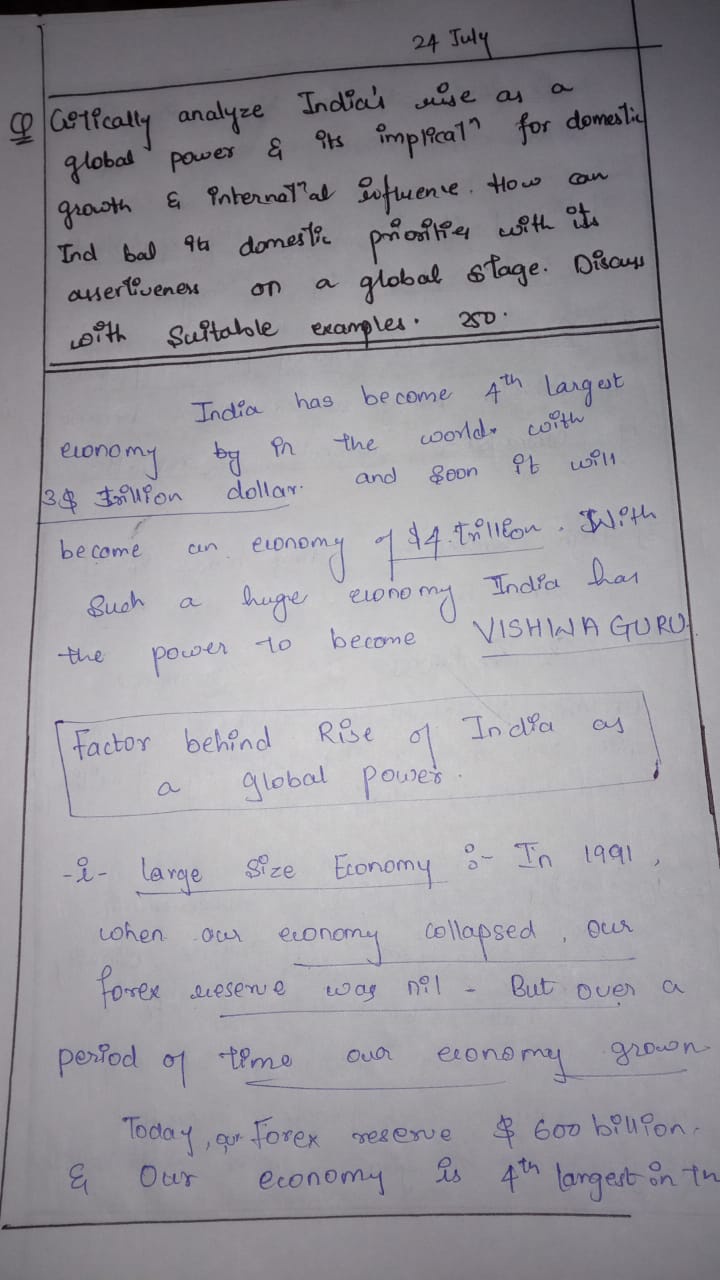 24 July
Q Critically analyze India's rise as a
global power & its implicatⁿ for domestic
growth & internatⁿal influence. How can
Ind bal its domestic priorities with its
assertiveness on a global stage. Discuss
with suitable examples. 250.
India has become 4th largest
economy by in the world with
3$ trillion dollar. and soon it will
become an economy of $4 trillion. With
Such a huge economy India has
the power to become VISHWA GURU.
Factor behind Rise of India as
a global power.
-i- large Size Economy :- In 1991,
when our economy collapsed, our
forex reserve was nil - But over a
period of time our economy grown.
Today, our Forex reserve $ 600 billion.
& Our economy is 4th largest in th